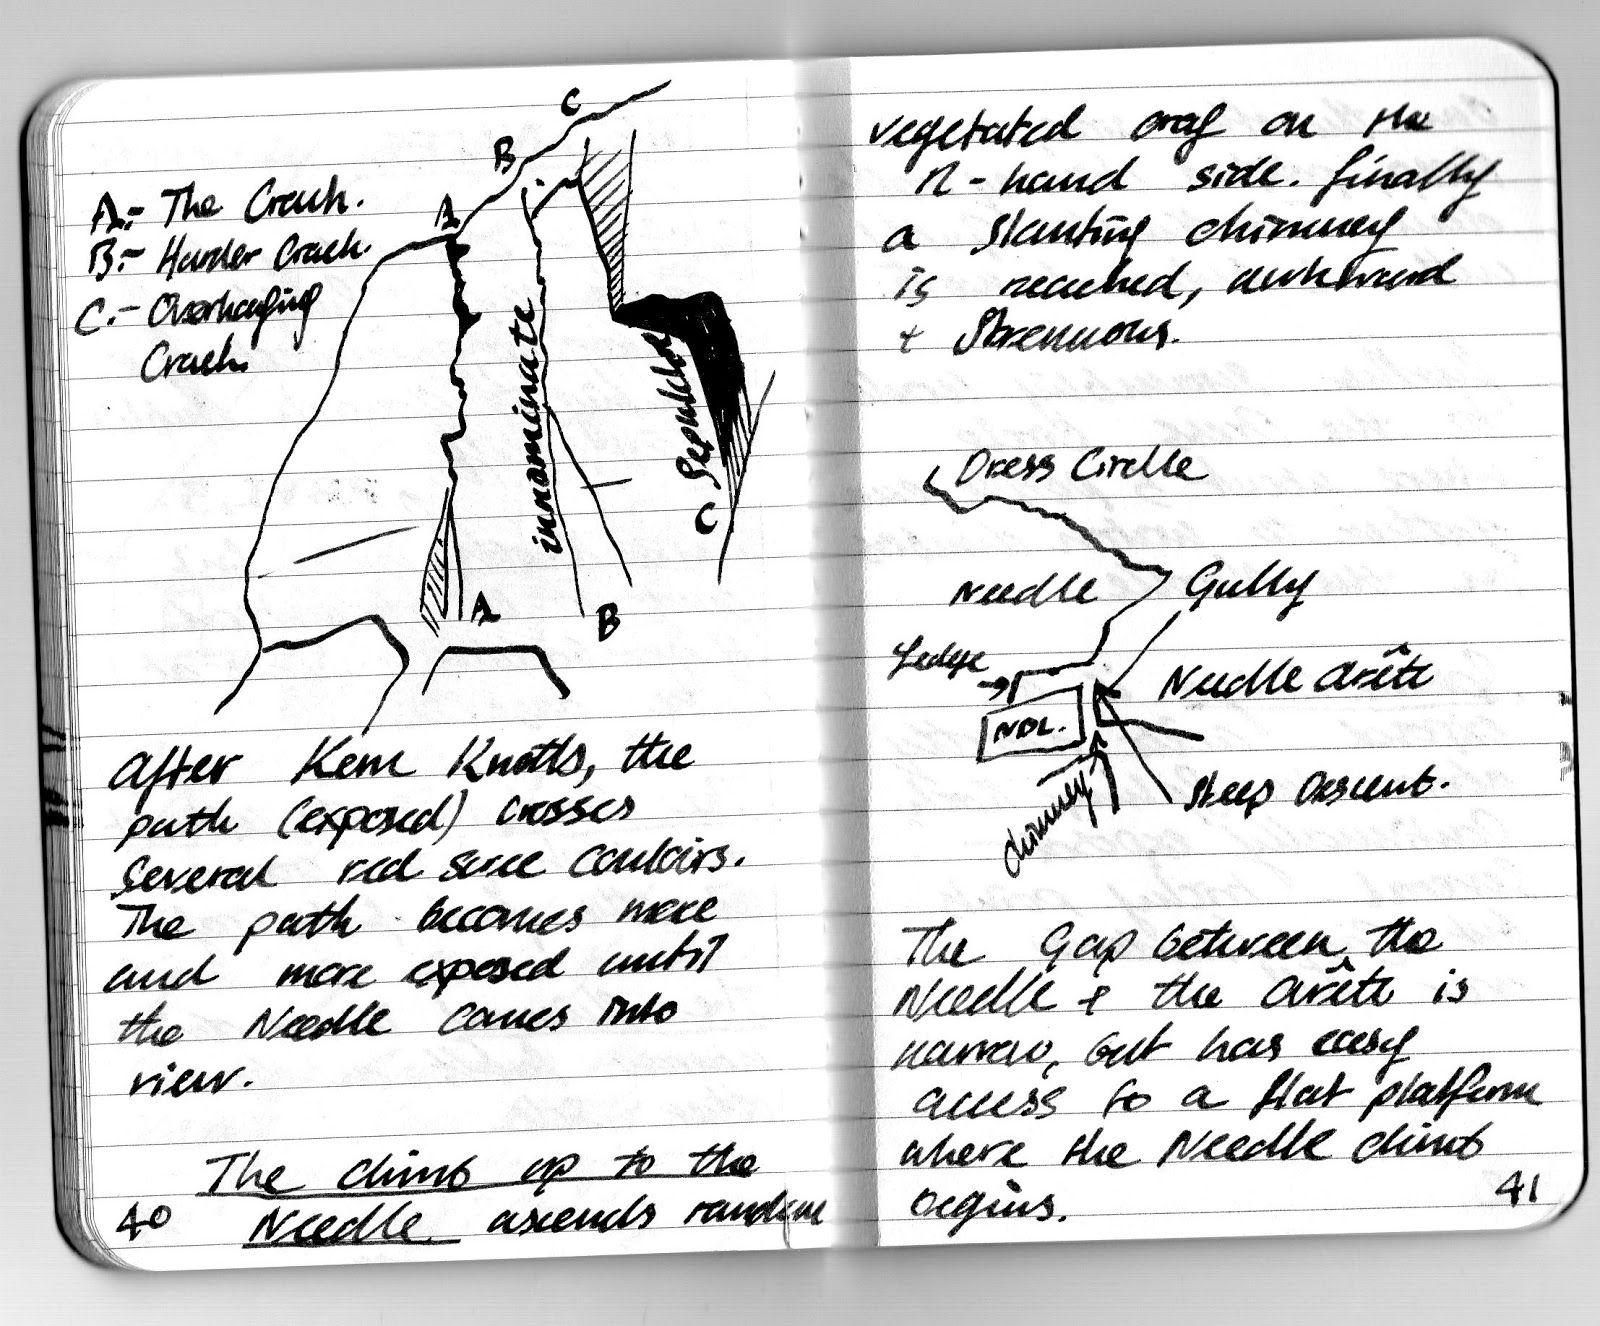 C
B
A:- The Crack.
A
B:- Harder Crack.
C:- Overhanging
Crack.
innominate
Sepulchre
C
A
B
After Kern Knotts, the
path (exposed) crosses
several red scree couloirs.
The path becomes more
and more exposed until
the Needle comes into
view.
The climb up to the
Needle ascends random
40
vegetated crag on the
R-hand side. finally
a slanting chimney
is reached, awkward
+ Strenuous.
Dress Circle
Needle Gully
Ledge
Needle Arête
NDL.
chimney
Steep Descent.
The Gap between the
Needle + the Arête is
narrow, but has easy
access to a flat platform
where the Needle climb
begins.
41